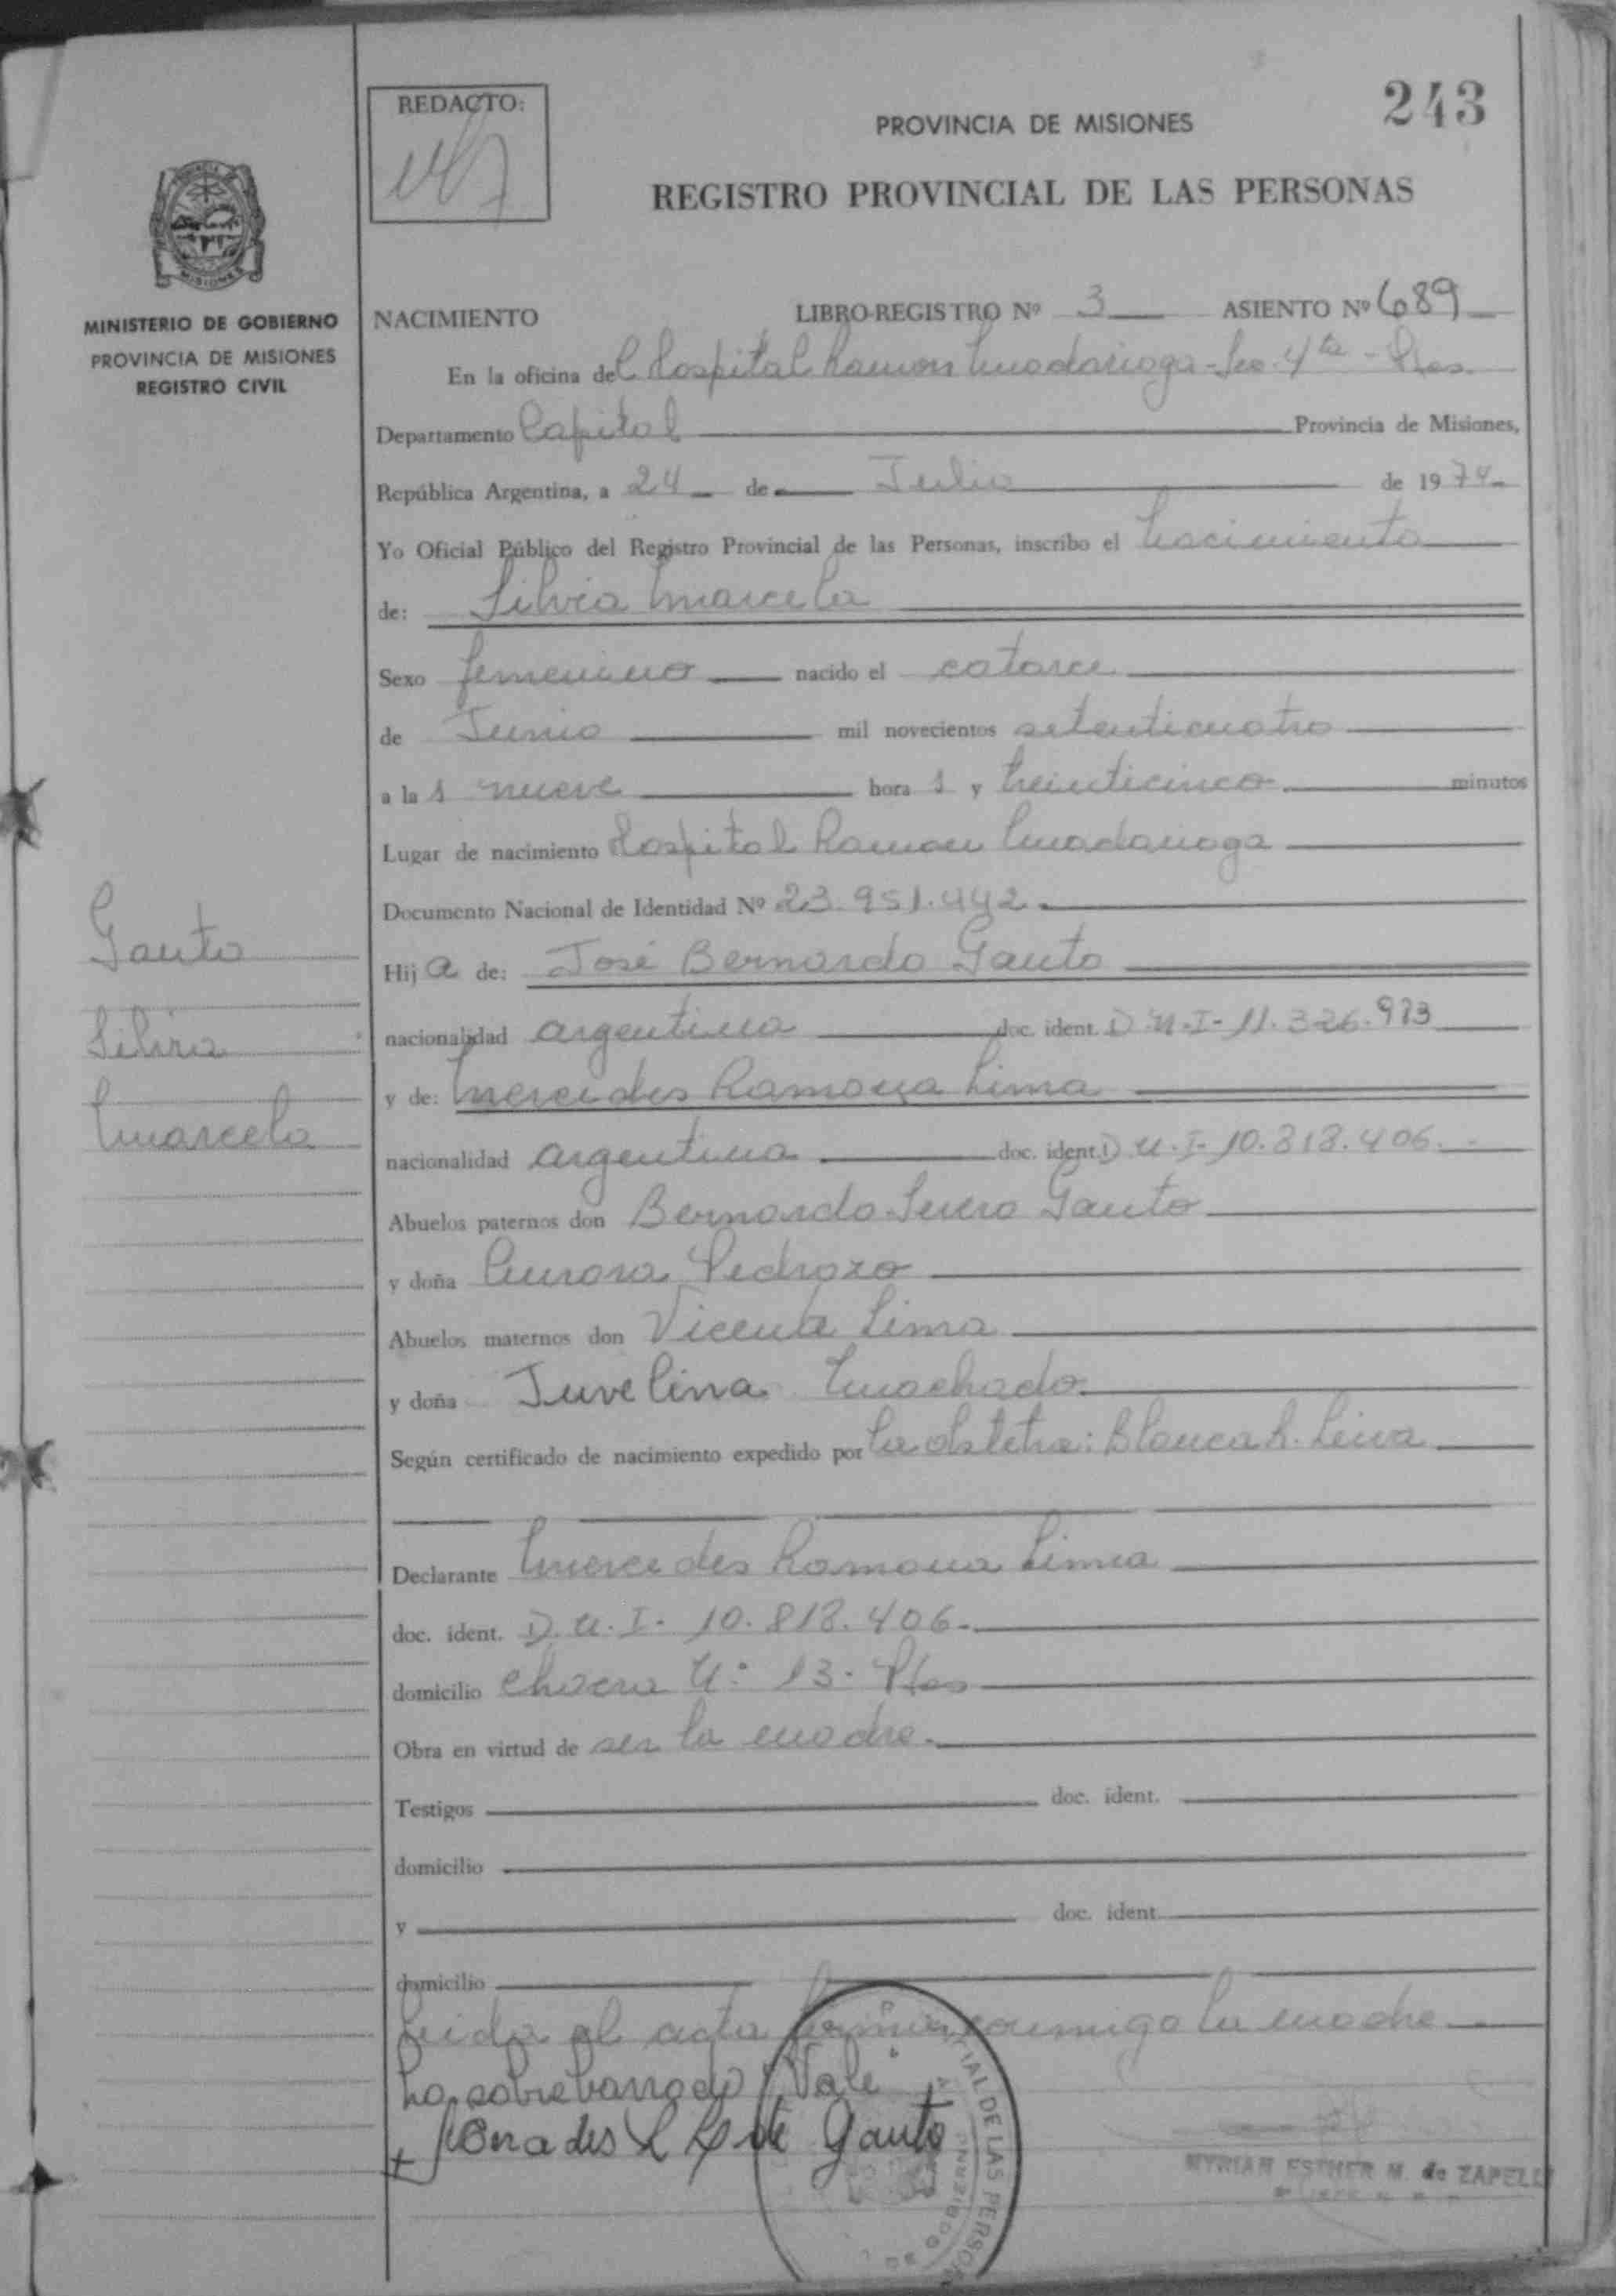 243
REDACTO:
PROVINCIA DE MISIONES
REGISTRO PROVINCIAL DE LAS PERSONAS
MISIONES
MINISTERIO DE GOBIERNO
PROVINCIA DE MISIONES
REGISTRO CIVIL
NACIMIENTO LIBRO-REGISTRO Nº 3 ASIENTO Nº 689
En la oficina del Hospital Ramon Madariaga - Sec. 4ta - Pdas.
Departamento Capital Provincia de Misiones,
República Argentina, a 24 de Julio de 1974
Yo Oficial Público del Registro Provincial de las Personas, inscribo el Nacimiento
de: Silvia Marcela
Sexo femenino nacido el catorce
de Junio mil novecientos setenticuatro
a las nueve horas y treinticinco minutos
Lugar de nacimiento Hospital Ramon Madariaga
Documento Nacional de Identidad Nº 23.951.442
Hija de: José Bernardo Gauto
nacionalidad argentina doc. ident. D.N.I- 11.326.973
y de: Mercedes Ramona Lima
nacionalidad argentina doc. ident. D.N.I- 10.818.406.
Abuelos paternos don Bernardo Gauto
y doña Aurora Pedrozo
Abuelos maternos don Vicente Lima
y doña Juvelina Machado
Según certificado de nacimiento expedido por la obstetra: Blanca R. Leiva
Declarante Mercedes Ramona Lima
doc. ident. D.N.I- 10.818.406.
domicilio chacra Nº 13. Pdas
Obra en virtud de ser la madre.
Testigos doc. ident.
domicilio
y doc. ident.
domicilio
Leida el acta firma conmigo la madre
Lo sobreborrado Vale
de Gauto
MYRIAN ESTHER M. de ZAPELLI
Gauto
Silvia
Marcela